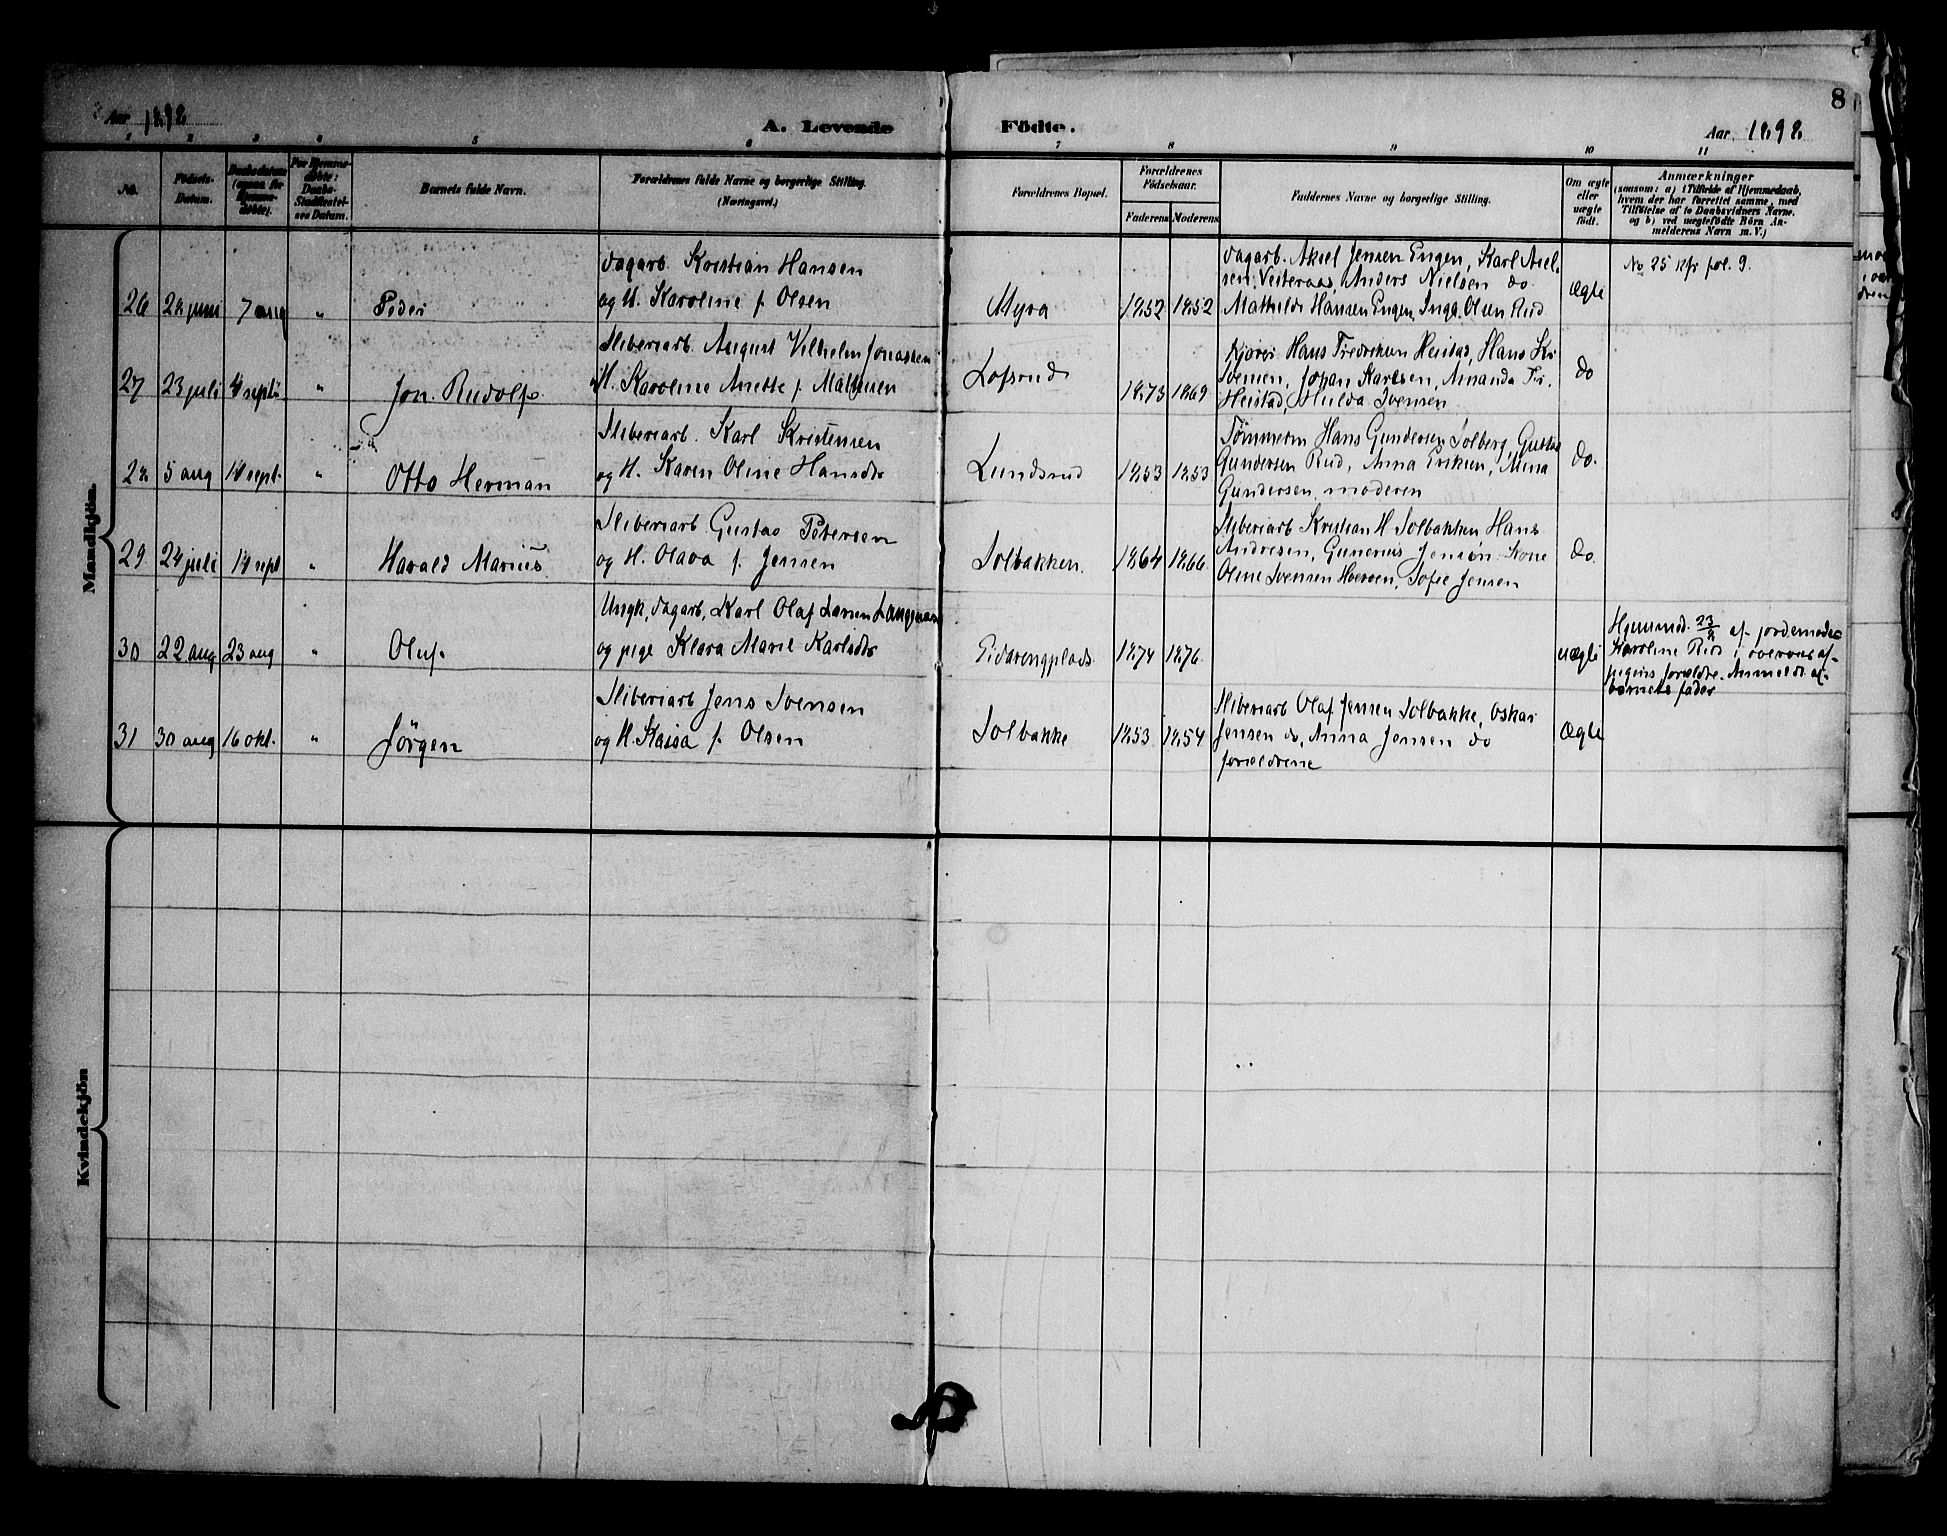 8
Aar 1898
A. Levende Födte.
Aar 1898
1 2 3 4 5 6 7 8 9 10 11
No.
Födsels-
Datum.
Daabsdatum
(ogsaa for
Hjemme-
döbte).
For Hjemme-
döbte:
Daabs-
Stadfæstel-
ses Datum.
Barnets fulde Navn.
Forældrenes fulde Navne og borgerlige Stilling.
(Næringsvei.)
Forældrenes Bopæl.
Forældrenes
Födselsaar.
Faderens Moderens
Faddernes Navne og borgerlige Stilling.
Om ægte
eller
uægte
födt.
Anmærkninger
(saasom: a) i Tilfælde af Hjemmedaab,
hvem der har forrettet samme, med
Tilföielse af to Daabsvidners Navne,
og b) ved uægtefödte Börn An-
melderens Navn m. V.)
Mandkjön.
26 28 juni 7 aug " Peder
Dagarb. Kristian Hansen
og H. Karoline f. Olsen
Myra 1852 1852
Dagarb. Aksel Jensen Engen, Karl Niel-
sen Vesteraas, Anders Nielsen do
Mathilde Hansen Engen, Inga Olsen Rud
Ægte
No 25 Kfr fol. 9.
27 23 juli 4 sept " Jon Rudolf
Sliberiarb. August Vilhelm Jonassen
H. Karoline Anette f. Mathisen
Lofsrud 1873 1869
Kjörer Hans Fredriksen Heistad, Hans Kr
Svensen, Johan Karlsen, Amanda Fr.
Heistad, Hulda Svensen
do
28 5 aug 18 sept. " Otto Herman
Sliberiarb. Karl Kristensen
og H. Karen Oline Hansdtr
Lundsrud 1853 1853
Tömmerm Hans Gundersen Solberg, Gustav
Gundersen Rud, Anna Eriksen, Mina
Gundersen, moderen
do.
29 24 juli 18 sept " Harald Marius
Sliberiarb Gustav Petersen
og H. Olava f. Jensen
Solbakken. 1864 1866
Sliberiarb Kristian H Solbakken Hans
Andresen, Gunerius Jensen Kone
Oline Svensen Hoersen, Sofie Jensen
do.
30 22 aug 23 aug " Oluf
Ungk, dagarb, Karl Olaf Larsen Langenæs
og pige Klara Marie Karlsdtr
Eidsengplads 1874 1876
uægte
Hjemmed. 23/8 af jordemoder
Karoline Rud i overvær af
pigens forældre. Anmeldt af
barnets fader
31 30 aug 16 okt. " Jörgen
Sliberiarb Jens Svensen
og H. Kaisa f. Olsen
Solbakke 1853 1854
Sliberiarb Olaf Jensen Solbakke, Oskar
Jensen do, Anna Jensen do
forældrene
Ægte
Kvindekjön